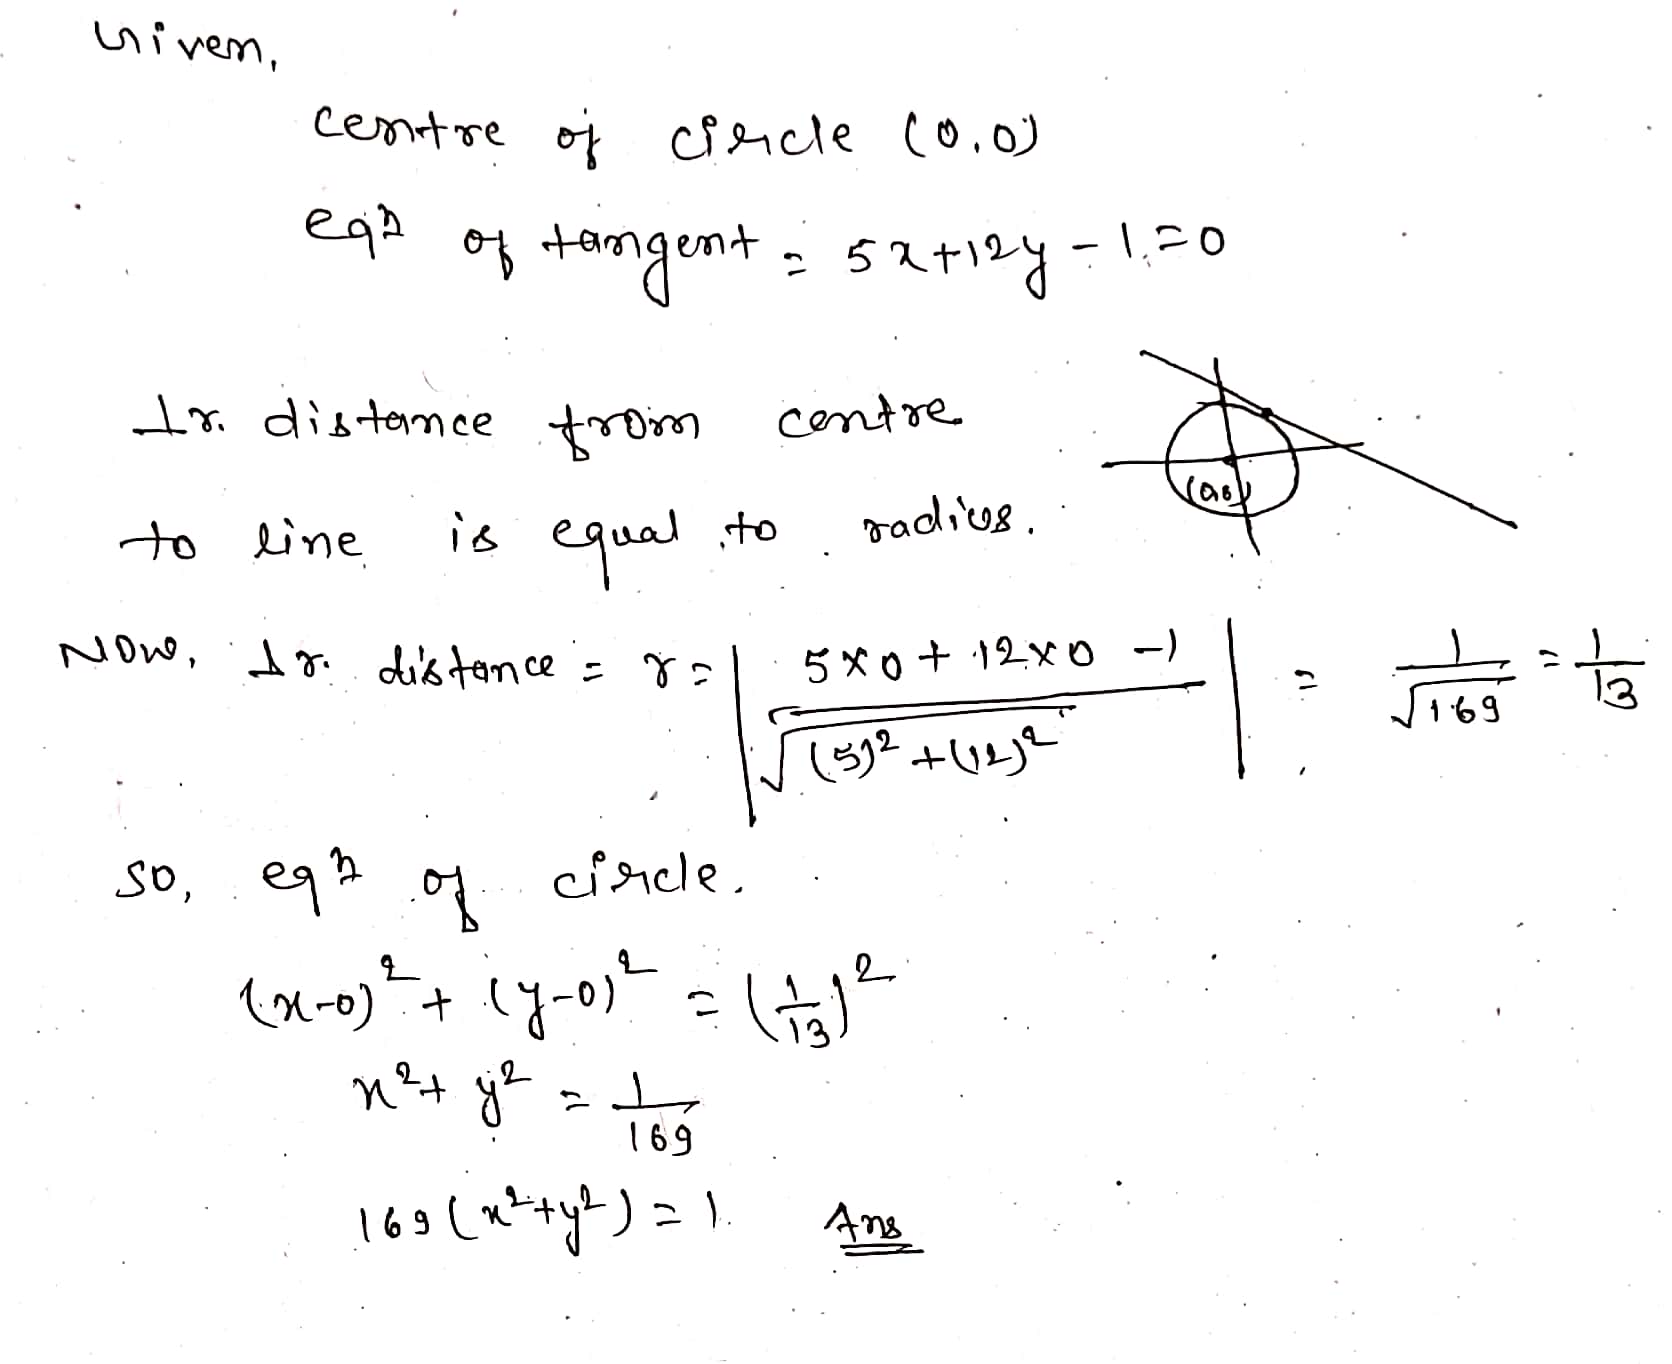 Given,
centre of circle (0,0)
eqn of tangent = 5x+12y-1=0
⊥r. distance from centre
to line is equal to radius.
(0,0)
Now, ⊥r. distance = r = | 5×0+12×0-1 / √(5)²+(12)² | = 1/√169 = 1/13
So, eqn of circle.
(x-0)² + (y-0)² = (1/13)²
x²+ y² = 1/169
169(x²+y²) = 1. Ans